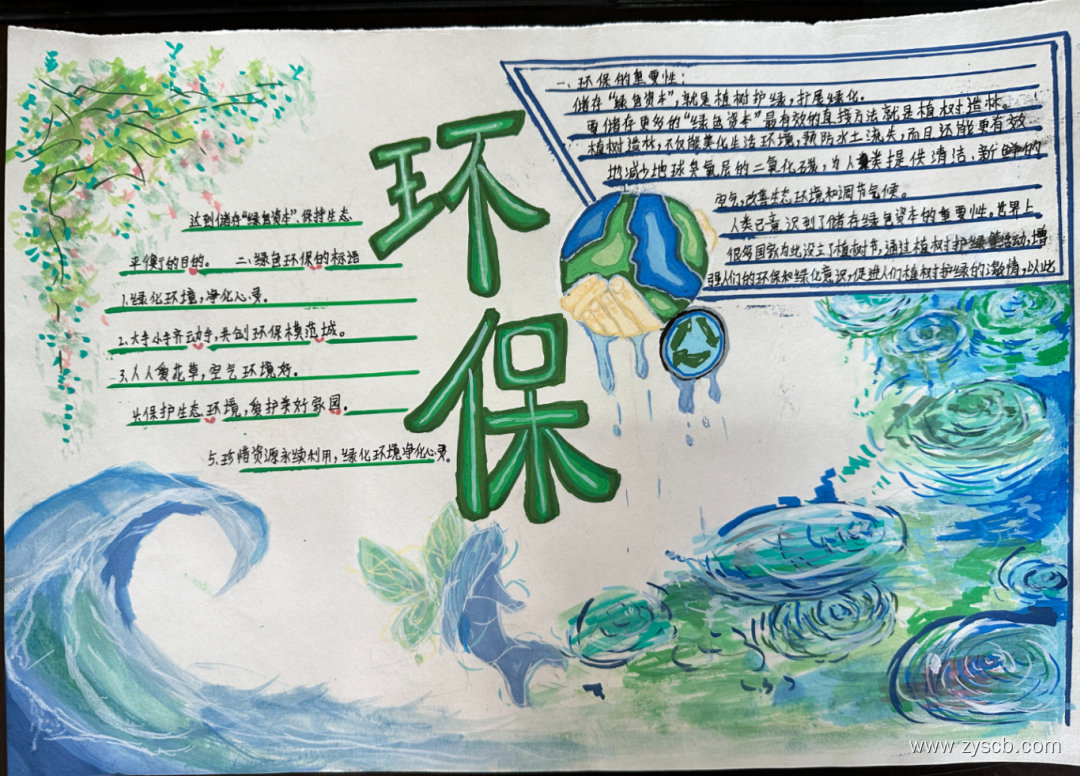 环保
一、环保的重要性：
储存“绿色资本”，就是植树护绿，扩展绿化。
要储存更多的“绿色资本”最有效的直接方法就是植树造林。
植树造林，不仅能美化生活环境，预防水土流失，而且还能更有效
地减少地球臭氧层的二氧化碳，为人类提供清洁、新鲜的
空气，改善生态环境和调节气候。
人类已意识到了储存绿色资本的重要性。世界上
很多国家为此设立了植树节，通过植树护绿等活动，增
强人们的环保和绿化意识，促进人们植树护绿的激情，以此
达到储存“绿色资本”，保持生态
平衡的目的。 二、绿色环保的标语
1.绿化环境，净化心灵。
2.大手小手齐动手，共创环保模范城。
3.人人爱花草，空气环境好。
4.保护生态环境，爱护美好家园。
5.珍惜资源永续利用，绿化环境净化心灵。
www.zyscb.com